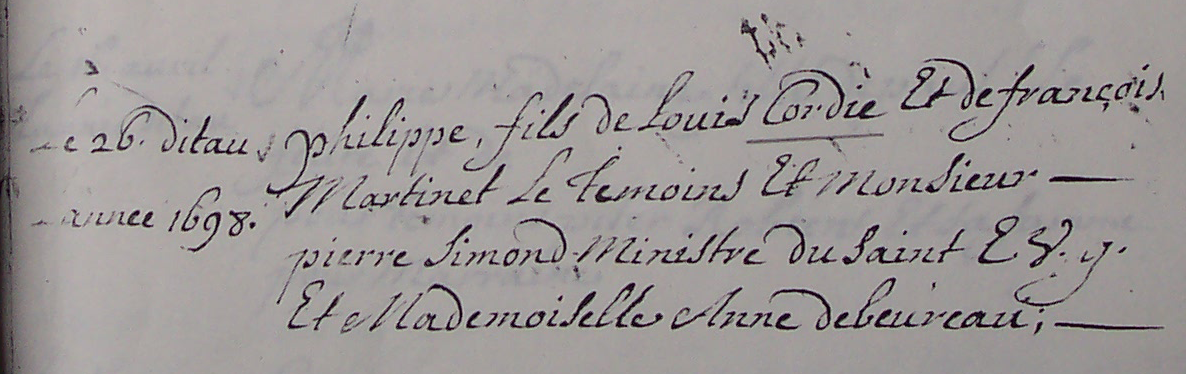 Le 26. ditau philippe, fils de Louis Cordie Et de françois.
Martinet Le temoins Et Monsieur —
annee 1698.
pierre Simond Ministre du Saint E V. g.
Et Mademoiselle Anne debeureau; —